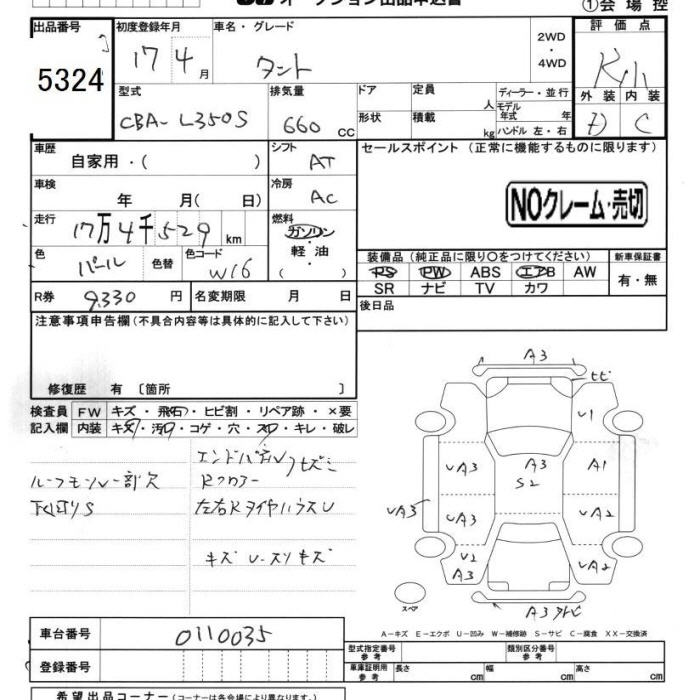 オークション出品申込書
①会場控
出品番号
5324
初度登録年月
17 4 月
車名・グレード
タント
2WD
・
4WD
評価点
外装 内装
D C
型式
CBA-L350S
排気量
660 cc
ドア
定員
人
ディーラー・並行
モデル年式 年
形状
積載
kg
ハンドル 左・右
車歴
自家用・( )
シフト
AT
セールスポイント (正常に機能するものに限ります)
NOクレーム・売切
車検
年 月( 日)
冷房
AC
走行
17万4千529 km
燃料
ガソリン
・
軽油
( )
色
パール
色替
色コード
W16
装備品 (純正品に限り○をつけてください)
新車保証書
PS PW ABS エアB AW
SR ナビ TV カワ
有・無
R券
9,330 円
名変期限 月 日
後日品
注意事項申告欄 (不具合内容等は具体的に記入して下さい)
修復歴 有 〔箇所 〕
検査員
記入欄
FW キズ・飛石・ヒビ割・リペア跡・×要
内装 キズ・汚レ・コゲ・穴・スレ・キレ・破レ
エンドパネル
ルーフモール一部欠
Rフロアー
下廻りS
左右RタイヤハウスU
キズ U・スリキズ
A3
ヒビ
U1
UA3
A3
S2
A1
UA3
UA3
UA2
U2
A3
UA2
スペア
A3
A-キズ E-エクボ U-凹み W-補修跡 S-サビ C-腐食 XX-交換済
車台番号
0110035
登録番号
型式指定番号
参考
類別区分番号
参考
車庫証明用
参考
長さ cm
幅 cm
高さ cm
希望出品コーナー (コーナーは各会場により異なります)